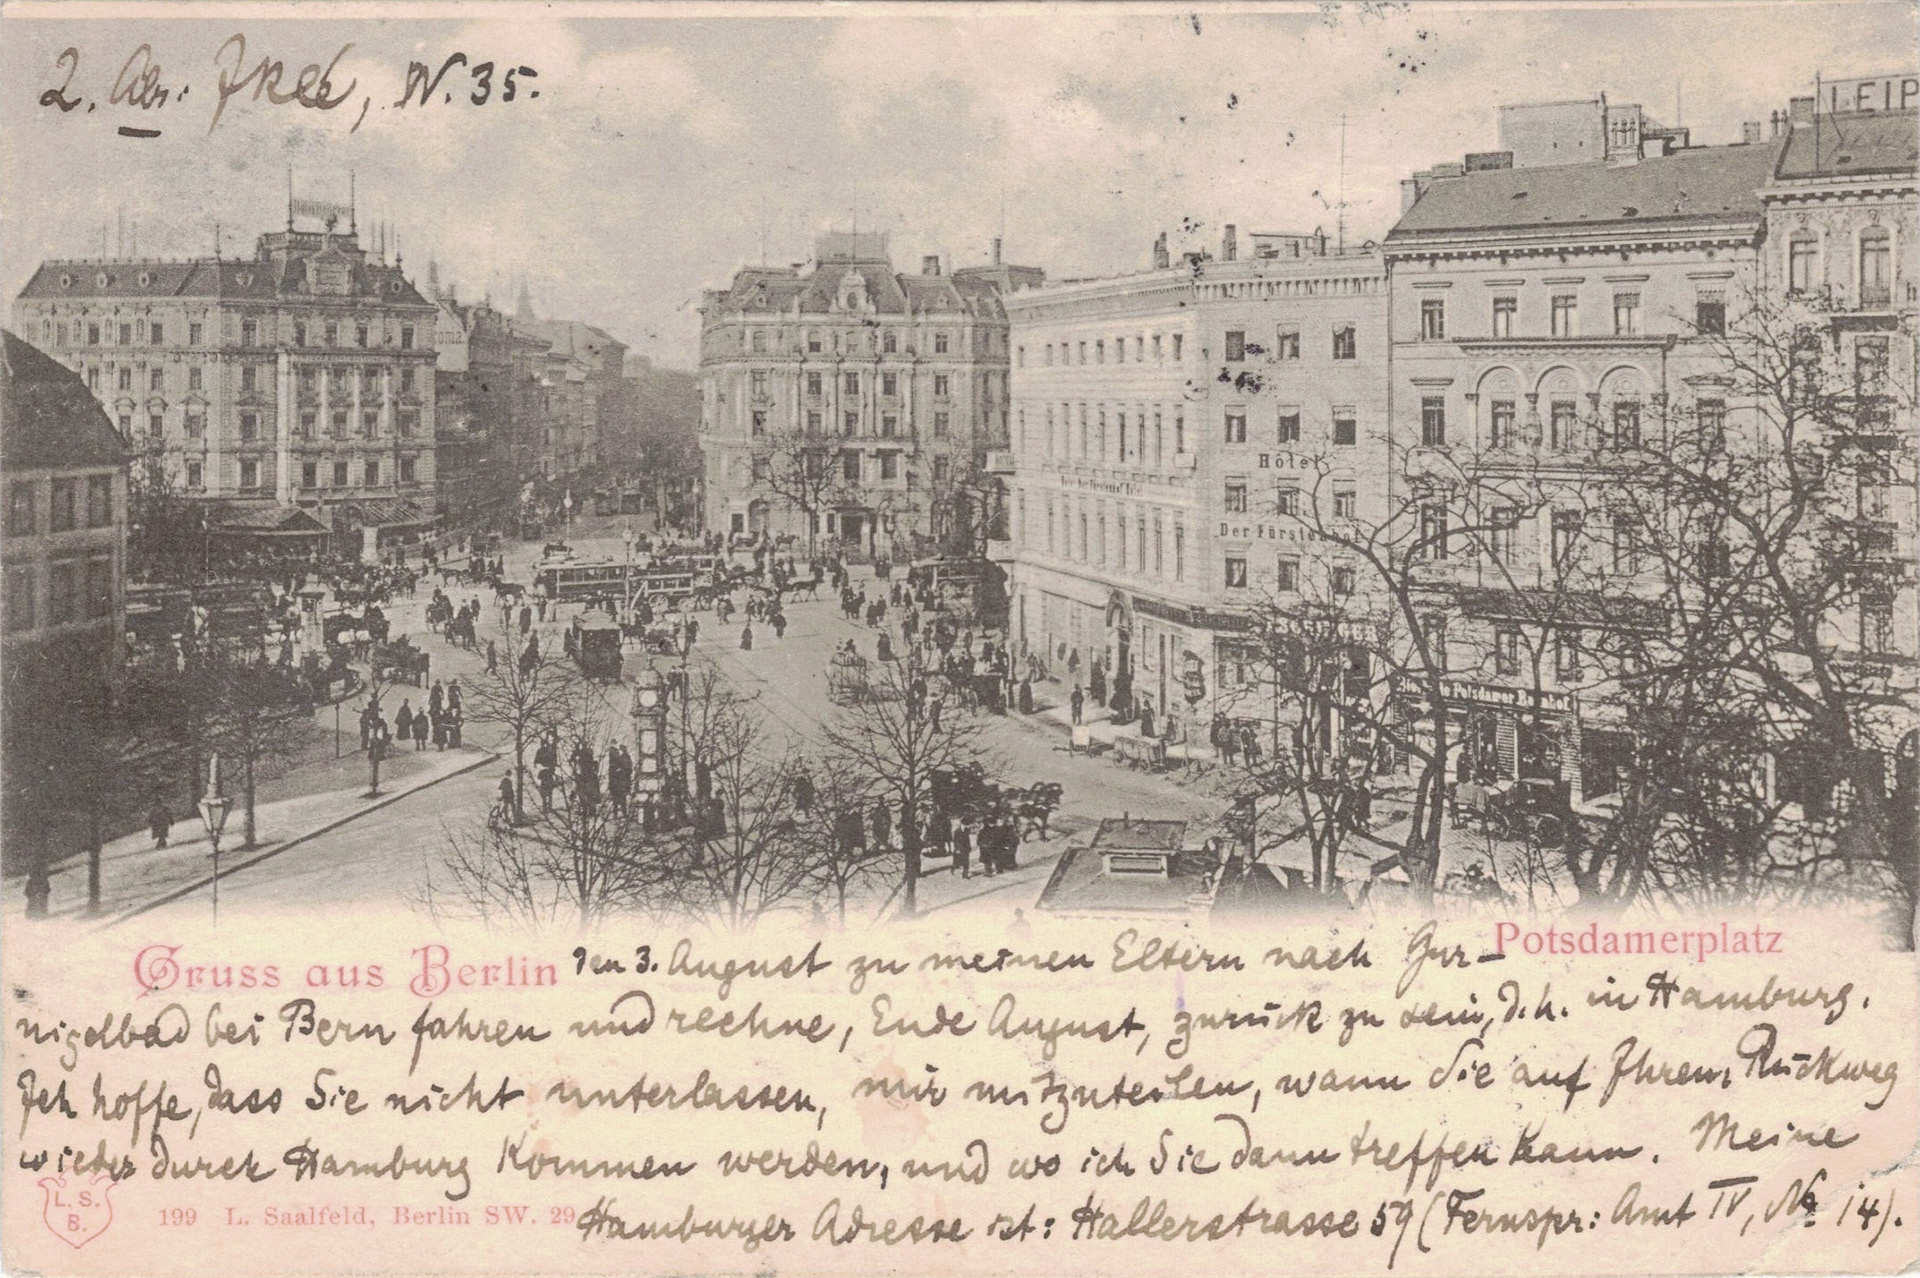 2. Abs: JKLE, N. 35.
LEIP
oma
Hôtel
Der Fürstenhof
Potsdamer Bahnhof
Gruss aus Berlin
Potsdamerplatz
den 3. August zu meinen Eltern nach Gur-
nigelbad bei Bern fahren und rechne, Ende August, zurück zu sein, d.h. in Hamburg.
Ich hoffe, dass Sie nicht unterlassen, mir mitzuteilen, wann Sie auf Ihrem Rückweg
wieder durch Hamburg kommen werden, und wo ich Sie dann treffen kann. Meine
Hamburger Adresse ist: Hallerstrasse 59 (Fernspr: Amt IV, № 14).
L. S.
B.
199 L. Saalfeld, Berlin SW. 29